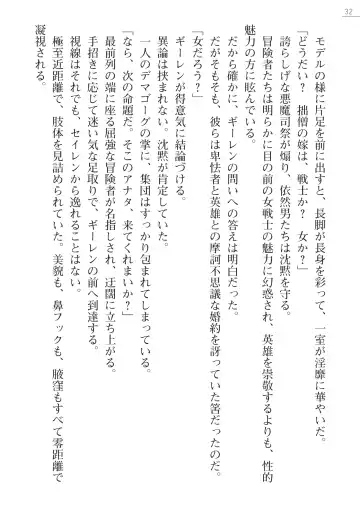 32
モデルの様に片足を前に出すと、長脚が長身を彩って、一室が淫靡に華やいだ。
「どうだい？　拙僧の嫁は、戦士か？　女か？」
誇らしげな悪魔司祭が煽り、依然男たちは沈黙を守る。
冒険者たちは明らかに目の前の女戦士の魅力に幻惑され、英雄を崇敬するよりも、性的
魅力の方に眩んでいる。
だから確かに、ギーレンの問いへの答えは明白だった。
だがそもそも、彼らは卑怯者と英雄との摩訶不思議な婚約を訝っていた筈だったのだ。
「女だろう？」
ギーレンが得意気に結論づける。
異論は挟まれない。沈黙が肯定していた。
一人のデマゴーグの掌に、集団はすっかり包まれてしまっている。
「なら、次の命題だ。そこのアナタ、来てくれまいか？」
最前列の端に座る屈強な冒険者が名指しされ、迂闊に立ち上がる。
手招きに応じて迷い気な足取りで、ギーレンの前へ到達する。
視線はそれでも、セイレンから逸れることはない。
極至近距離で、肢体を見詰められていた。美貌も、鼻フックも、腋窪もすべて零距離で
凝視される。